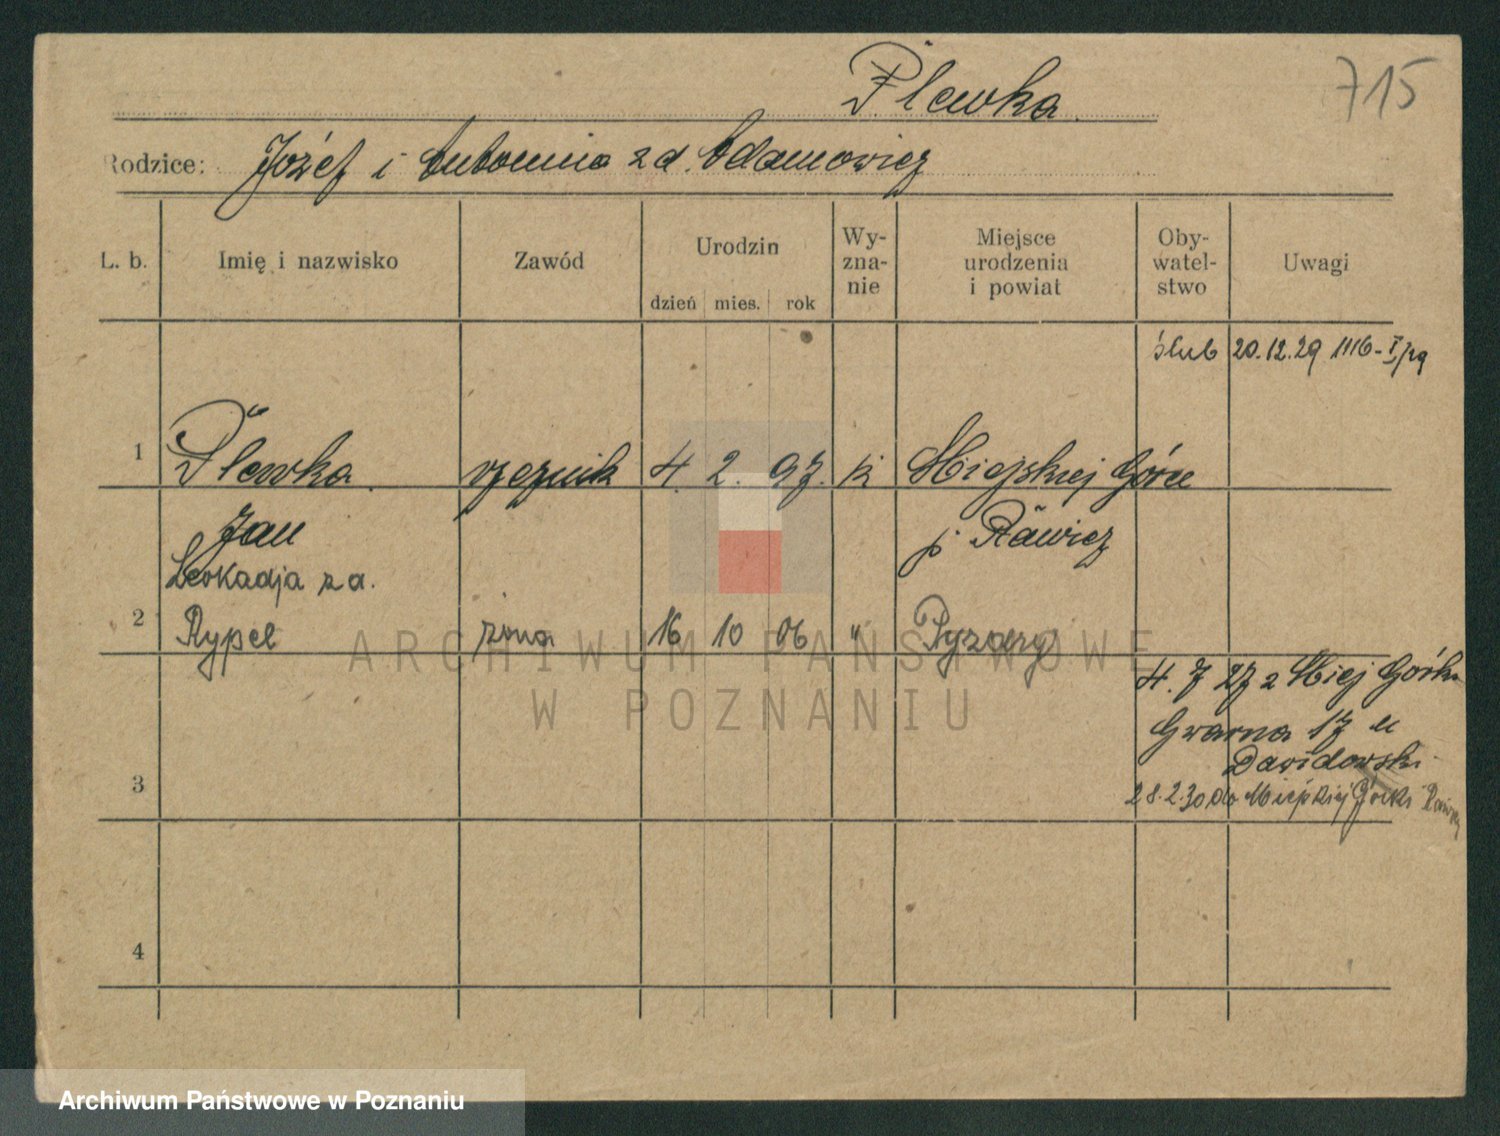 Plewka
715
Rodzice: Józef i Antonina z d. Adamowicz
L. b. Imię i nazwisko Zawód Urodzin dzień mies. rok Wy-zna-nie Miejsce urodzenia i powiat Oby-watel-stwo Uwagi
ślub 20.12.29 1116-I/29
1 Plewka rzeźnik 4. 2. 97. k Miejskiej Górce
Jan p. Rawicz
Leokadja z d.
2 Rypel żona 16 10 06 "
ARCHIWUM PAŃSTWOWE
W POZNANIU
4. 7 27 z Miej Górki
Gwarna 17 u
Dawidowski
3 28.2.30 do Miejskiej Górki Rawicz
4
Archiwum Państwowe w Poznaniu